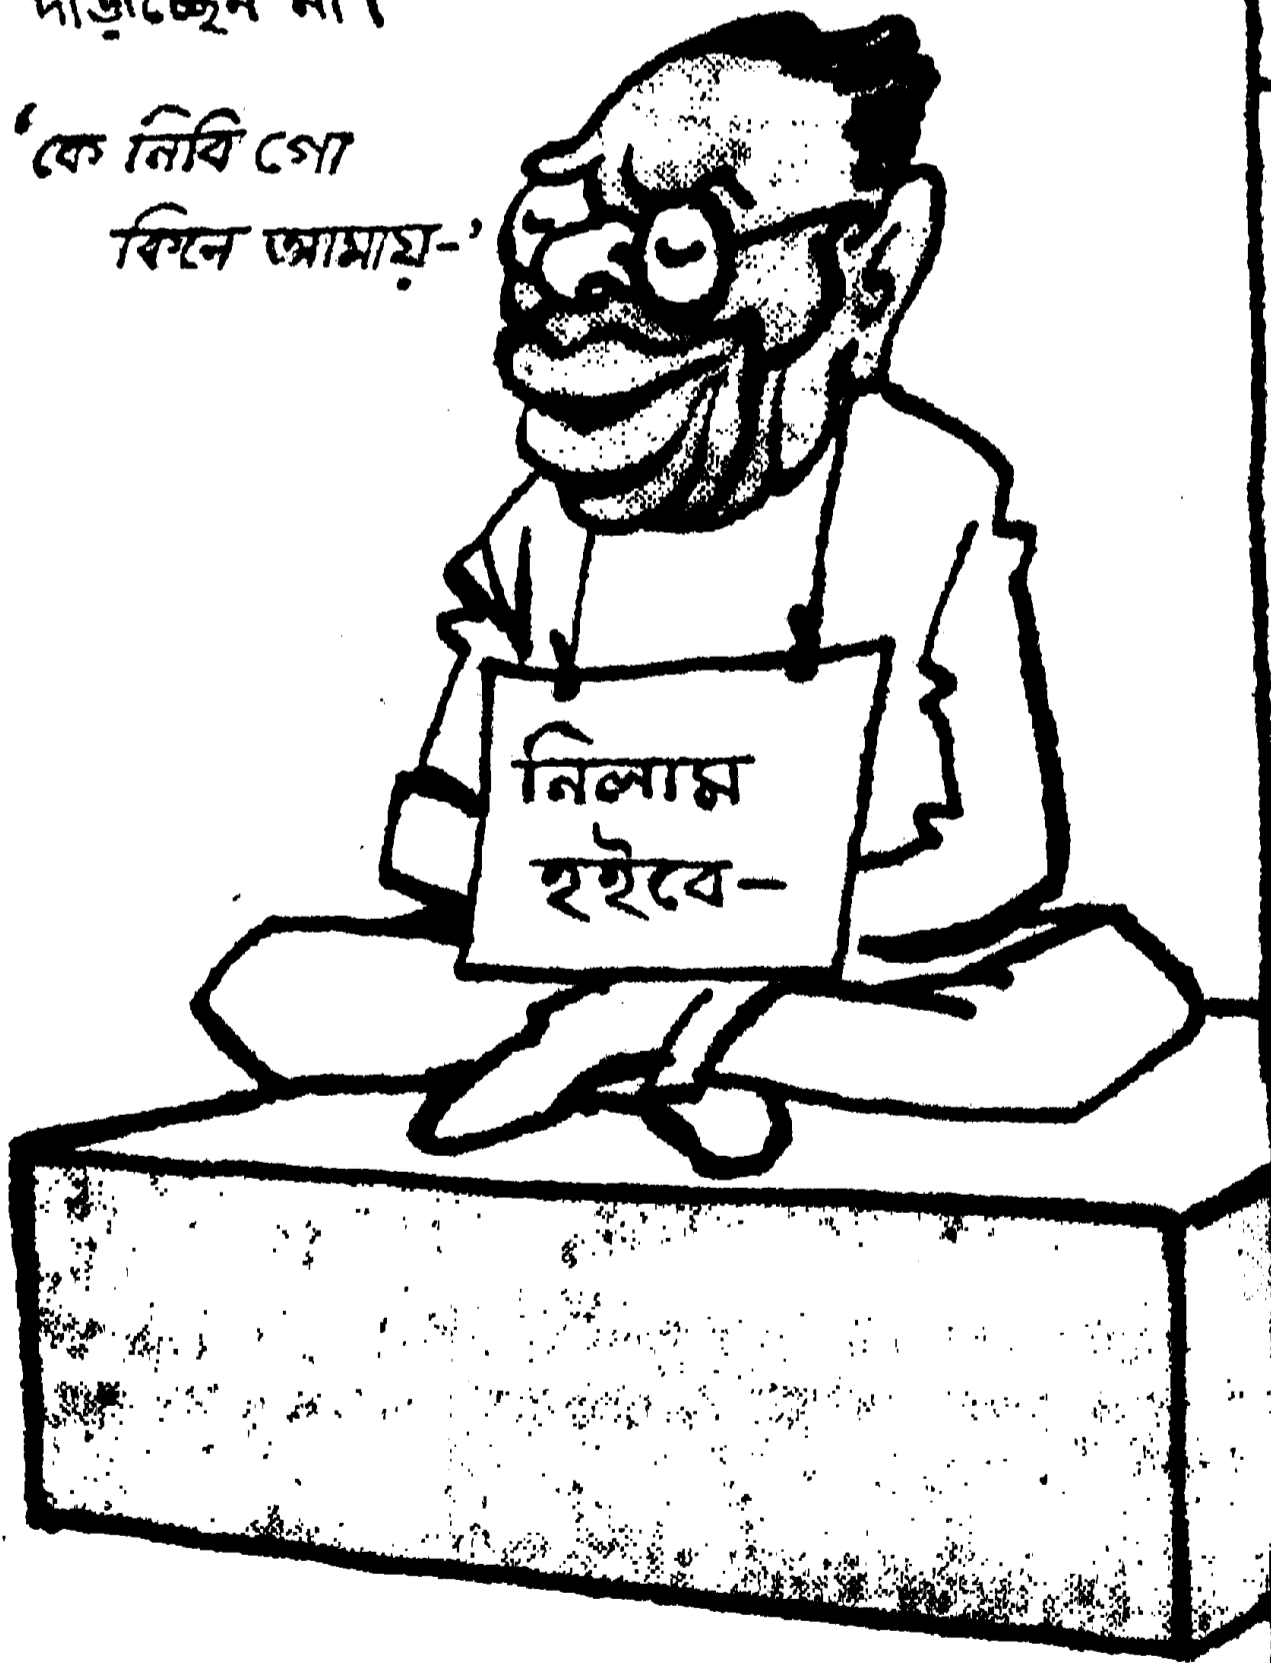 দাঁড়াচ্ছেন না।
'কে নিবি গো
কিনে আমায়-'
নিলাম
হইবে-